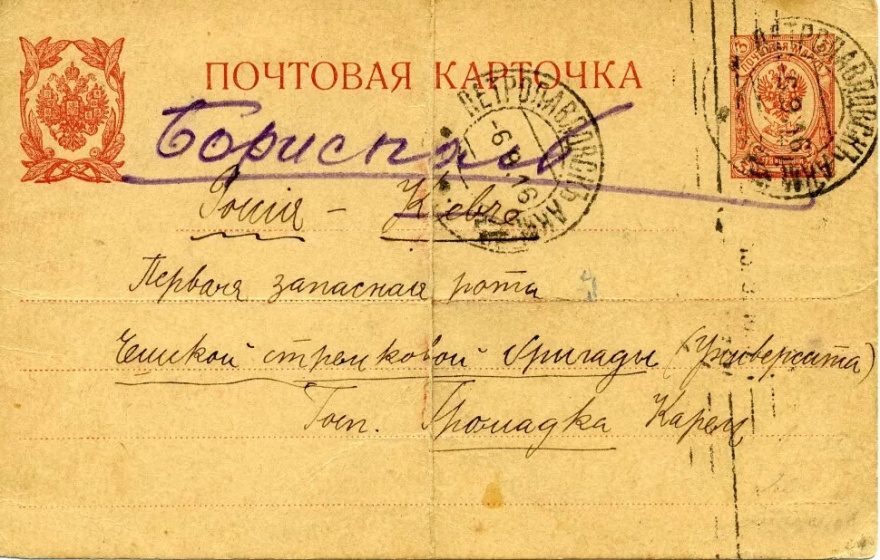 ПОЧТОВАЯ КАРТОЧКА
Бориспол
Росія - Кіевъ
Первая запасная рота
Чешской стрелковой бригады (Университа)
Госп. Громадка Карел
ПЕТРОПАВЛОВСКЪ АКМ.
-6.9.16
ПЕТРОПАВЛОВСКЪ АКМ.
3
3